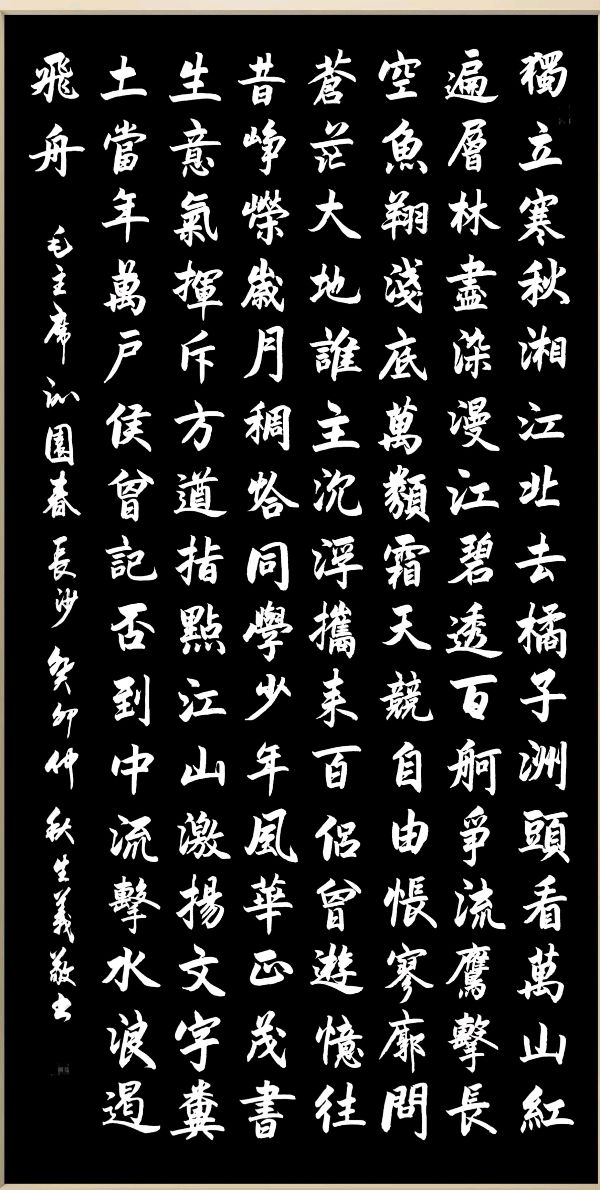 獨立寒秋湘江北去橘子洲頭看萬山紅
遍層林盡染漫江碧透百舸爭流鷹擊長
空魚翔淺底萬類霜天競自由悵寥廓問
蒼茫大地誰主沉浮攜來百侶曾遊憶往
昔崢嶸歲月稠恰同學少年風華正茂書
生意氣揮斥方遒指點江山激揚文字糞
土當年萬戶侯曾記否到中流擊水浪遏
飛舟 毛主席沁園春長沙癸卯仲秋生義敬书